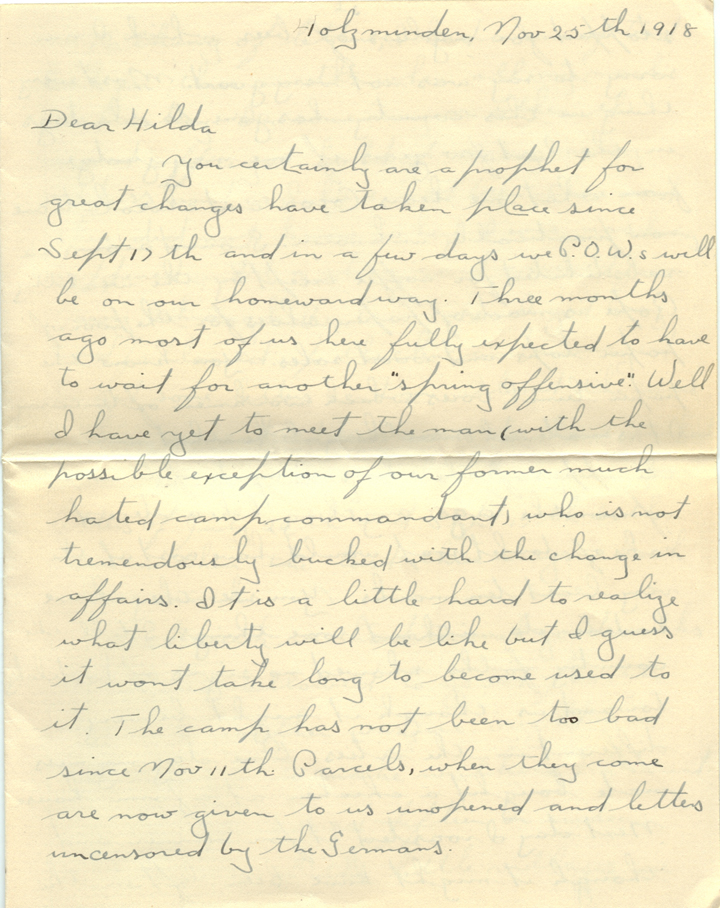 Holzminden, Nov 25th 1918
Dear Hilda
You certainly are a prophet for
great changes have taken place since
Sept 17th and in a few days we P.O.W.s will
be on our homeward way. Three months
ago most of us here fully expected to have
to wait for another "spring offensive". Well
I have yet to meet the man (with the
possible exception of our former much
hated camp commandant) who is not
tremendously bucked with the change in
affairs. It is a little hard to realize
what liberty will be like but I guess
it wont take long to become used to
it. The camp has not been too bad
since Nov 11th. Parcels, when they come
are now given to us unopened and letters
uncensored by the Germans.